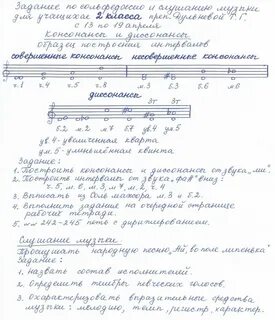 Задание по сольфеджио и слушанию музыки
для учащихся 2 класса преп. Дуленевой Т. Г.
с 13 по 19 апреля
Консонансы и диссонансы
образец построения интервалов
совершенные консонансы несовершенные консонансы
ч.1 ч.4 ч.5 ч.8 м.3 б.3 м.6 б.6
диссонансы
3т 3т
б.2 м.2 м7 б7 ув.4 ум5
ув.4 - увеличенная кварта
ум.5 - уменьшённая квинта
Задание:
1. Построить консонансы и диссонансы от звука "ми".
2. Построить интервалы от звука "фа" вниз:
ч.5, м.6, м.3, м.7, м.2, ч.4
3. Выписать из Соль мажора, м.3 и б.2.
4. Выполнить задание на очередной странице
рабочей тетради.
5. №№ 242-245 петь с дирижированием.
Слушание музыки.
Прослушать народную песню "Ай, во поле липенька"
Задание:
1. назвать состав исполнителей.
2. определить тембры певческих голосов.
3. охарактеризовать выразительные средства
музыки: мелодию, темп, регистр, характер.